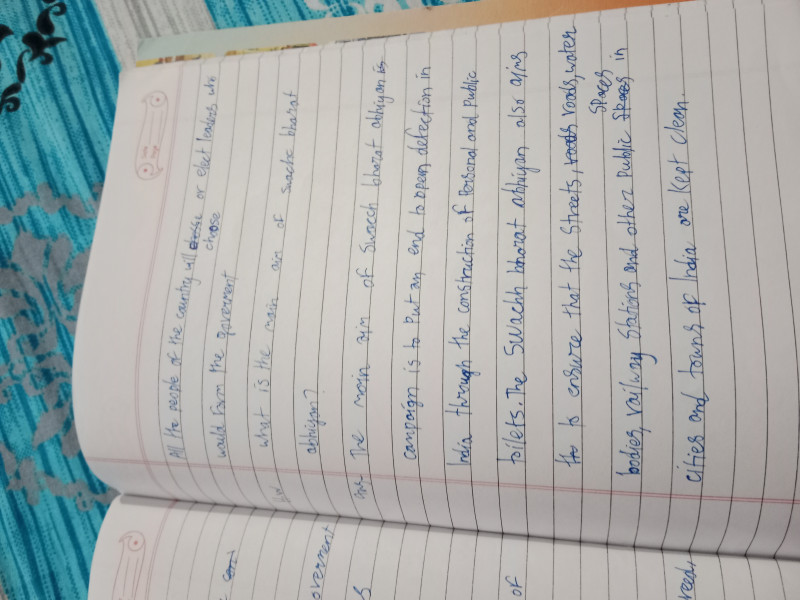 All the people of the country will choose or elect leaders who
would form the goverment
what is the main aim of swachh bharat
abhiyan?
The main aim of Swacch bharat abhiyan is
campaign is to put an end to open defection in
India through the construction of Personal and Public
toilets. The Swachh bharat abhiyan also aims
to ensure that the Streets, roads roads, water
bodies, railway Stations and other Public Spaces Spaces in
cities and towns of India are Kept clean.
overment
of